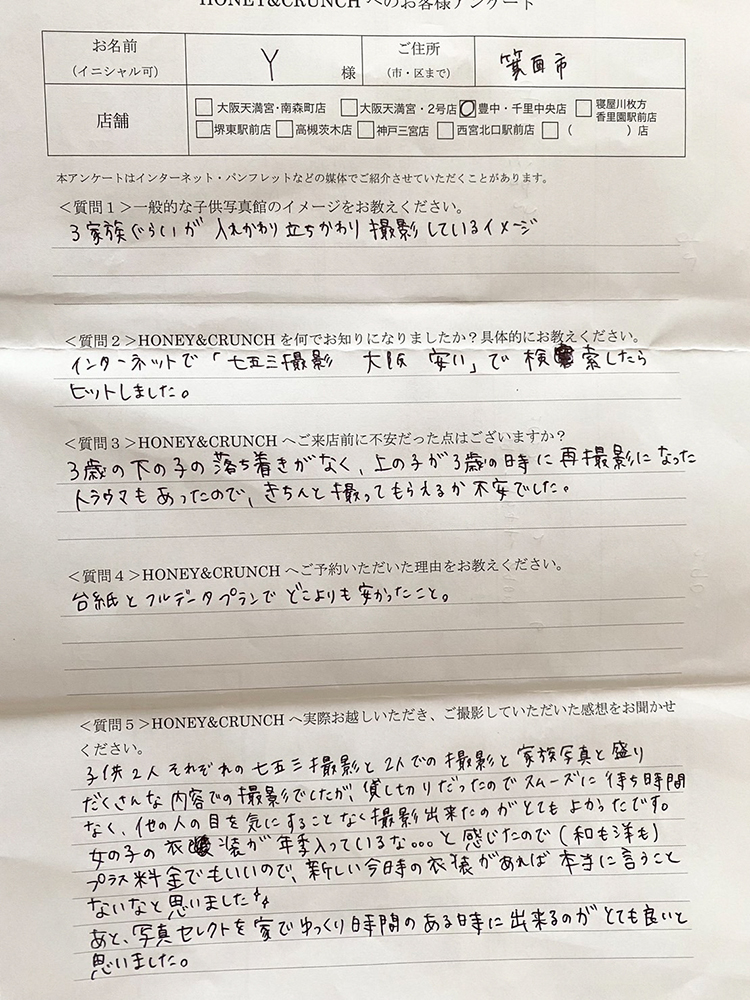 HONEY&CRUNCH へのお客様アンケート
お名前
(イニシャル可)
Y
様
ご住所
(市・区まで)
箕面市
店舗
大阪天満宮・南森町店
大阪天満宮・2号店
豊中・千里中央店
寝屋川枚方
香里園駅前店
堺東駅前店
高槻茨木店
神戸三宮店
西宮北口駅前店
( )店
本アンケートはインターネット・パンフレットなどの媒体でご紹介させていただくことがあります。
<質問1>一般的な子供写真館のイメージをお教えください。
3家族ぐらいが 入れかわり立ちかわり 撮影しているイメージ
<質問2>HONEY&CRUNCH を何でお知りになりましたか?具体的にお教えください。
インターネットで「七五三撮影 大阪 安い」で 検索したら
ヒットしました。
<質問3>HONEY&CRUNCH へご来店前に不安だった点はございますか?
3歳の下の子の落ち着きがなく、上の子が3歳の時に再撮影になった
トラウマもあったので、きちんと撮ってもらえるか不安でした。
<質問4>HONEY&CRUNCH へご予約いただいた理由をお教えください。
台紙とフルデータプランでどこよりも安かったこと。
<質問5>HONEY&CRUNCH へ実際お越しいただき、ご撮影していただいた感想をお聞かせ
ください。
子供2人それぞれの七五三撮影と2人での撮影と家族写真と盛り
だくさんな内容での撮影でしたが、貸し切りだったのでスムーズに待ち時間
なく、他の人の目を気にすることなく撮影出来たのがとてもよかったです。
女の子の衣装が年季入っているな。。。と感じたので(和も洋も)
プラス料金でもいいので、新しい今時の衣装があれば本当に言うこと
ないなと思いました
あと、写真セレクトを家でゆっくり時間のある時に出来るのがとても良いと
思いました。